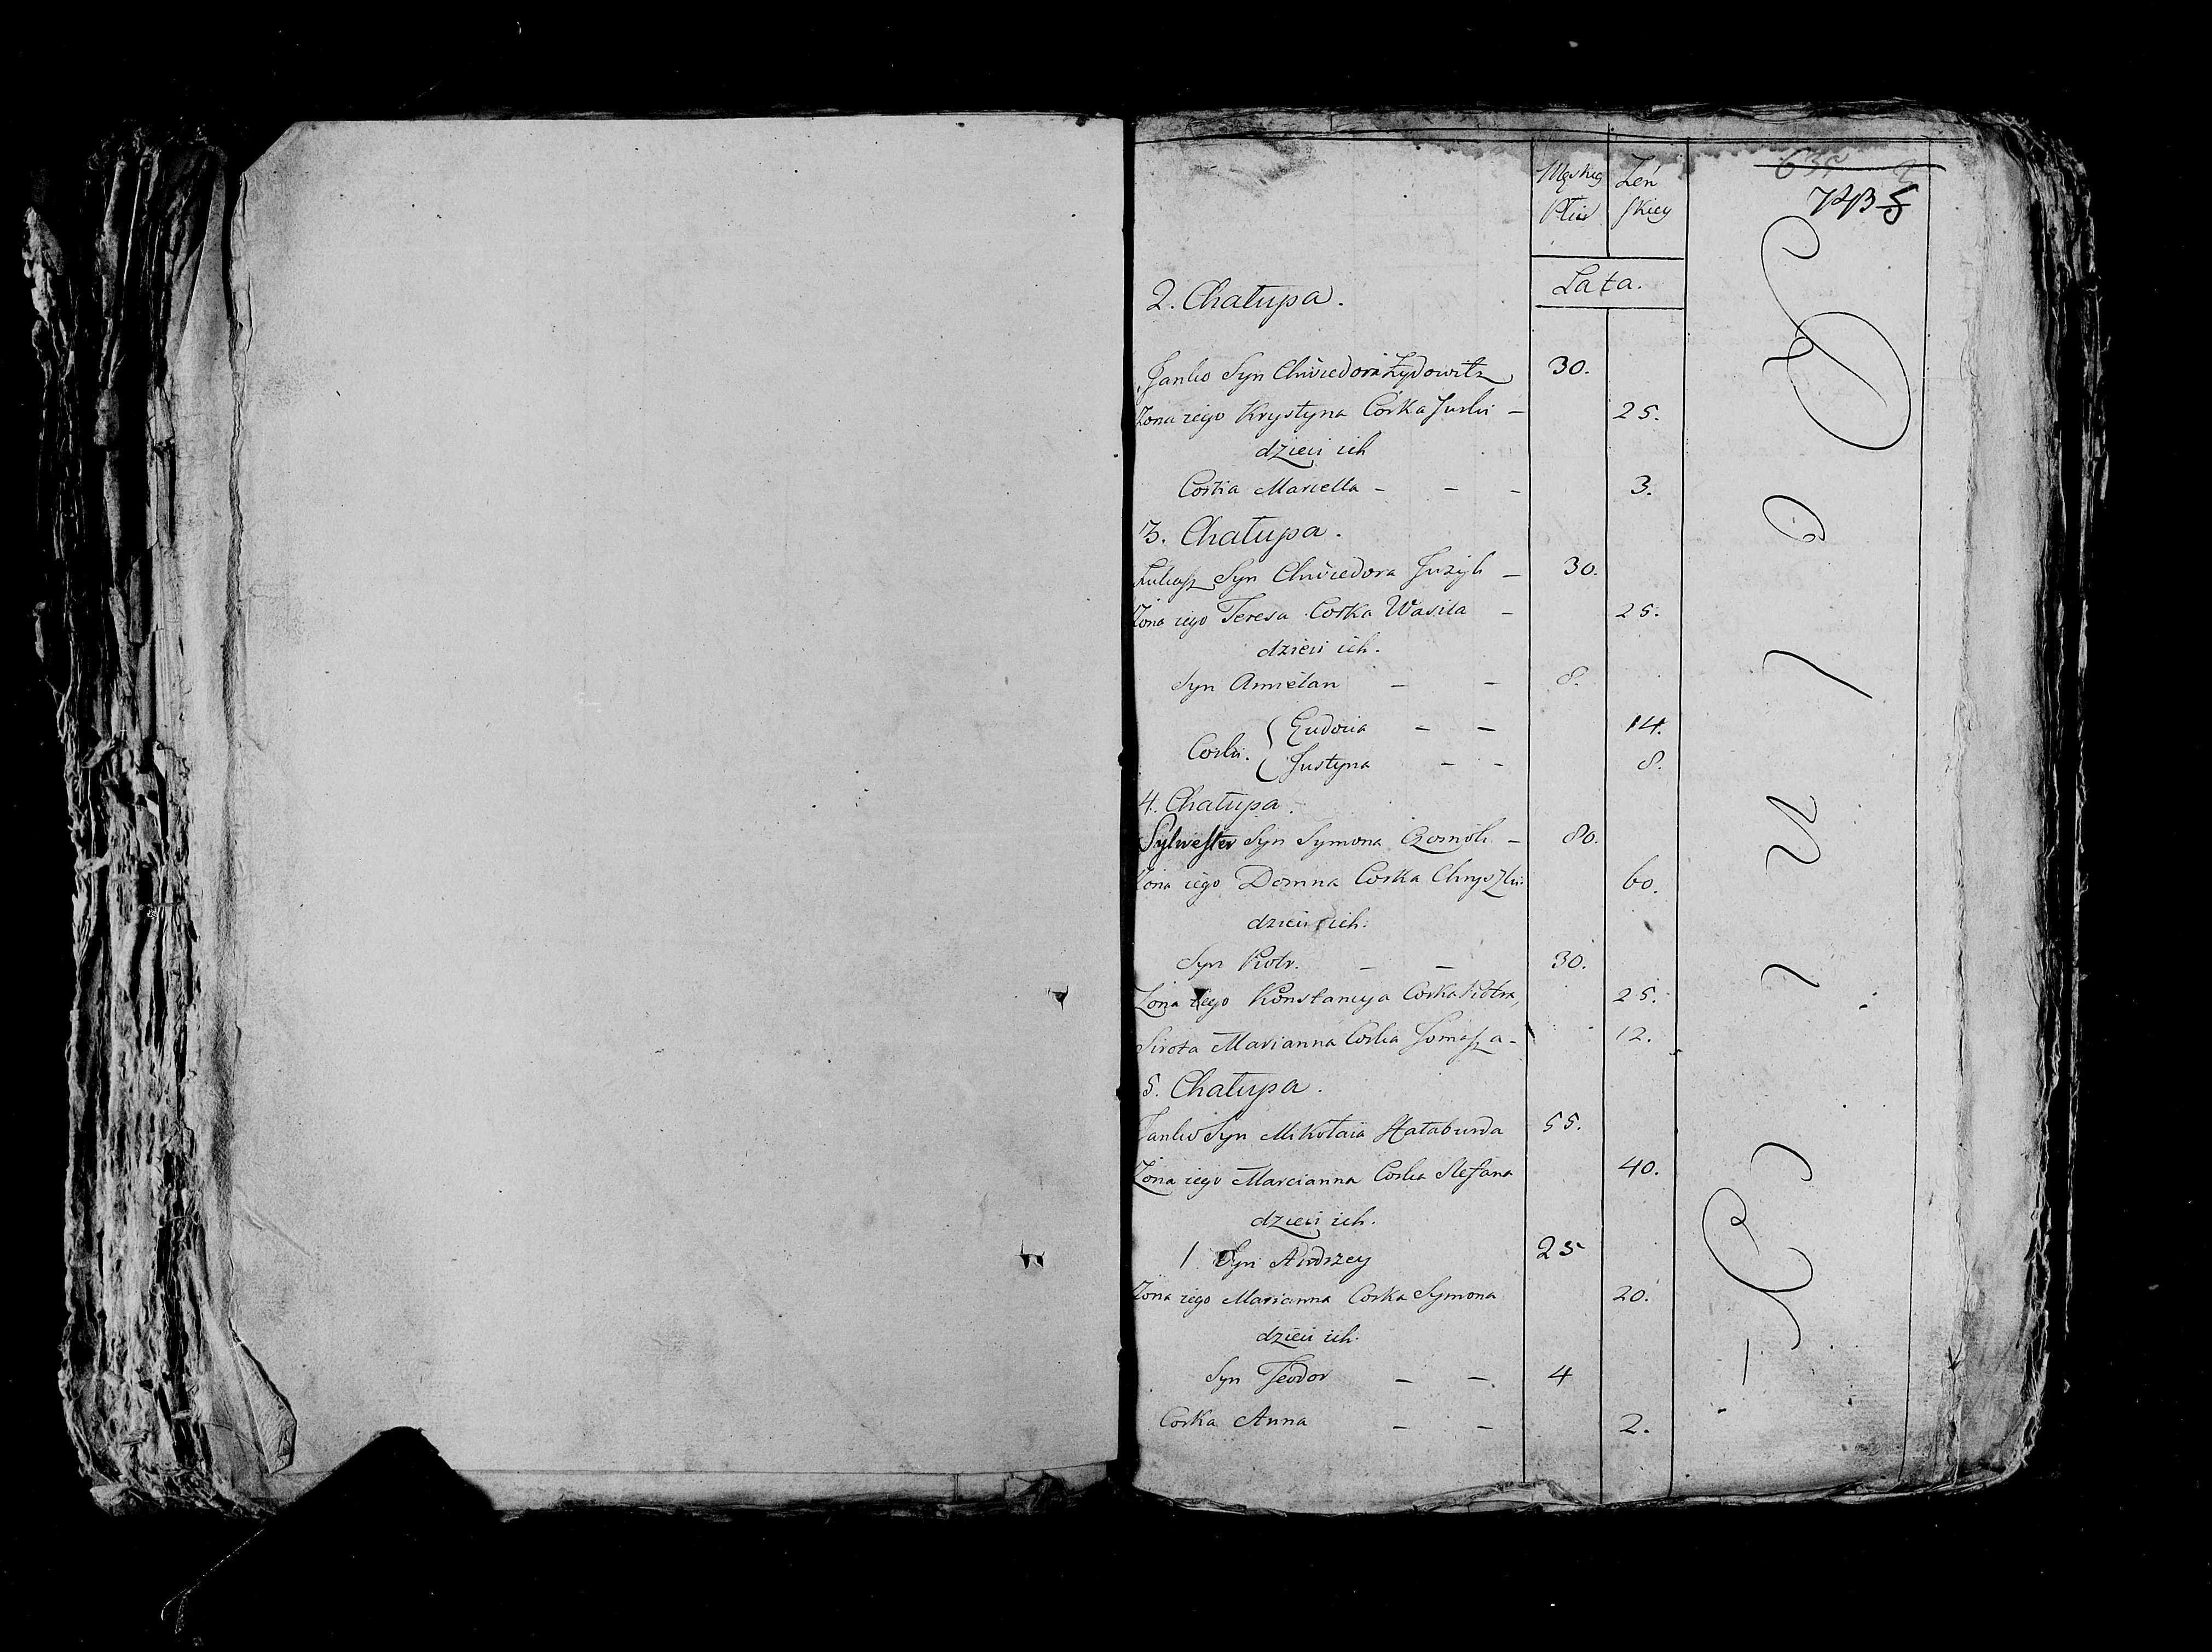 Męskieg Płci
Żeń skiey
635
7483
Lata.
2. Chałupa.
Janko Syn Chwiedora Żydowitz 30.
Żona iego Krystyna Corka Juśki – 25.
dzieci ich
Corka Marcella – – – 3.
3. Chałupa.
Łukasz Syn Chwiedora – 30.
Żona iego Teresa Corka Wasila – 25.
dzieci ich.
Syn Amielan – – 8.
Corki. Eudocia – – 14.
Justyna – – 8.
4. Chałupa.
Sylwester Syn Symona – 80.
Żona iego Domna Corka 60.
dzieci ich.
Syn Piotr. – – 30.
Żona iego Konstancya Corka Piotra, 25.
Sirota Marianna Corka Tomasza – 12.
5. Chałupa.
Janko Syn Mikołaia Hałaburda 55.
Żona iego Marcianna Corka Stefana 40.
dzieci ich.
1 Syn Andrzey 25
Żona iego Marianna Corka Symona 20.
dzieci ich.
Syn Teodor – – 4
Corka Anna – – 2.